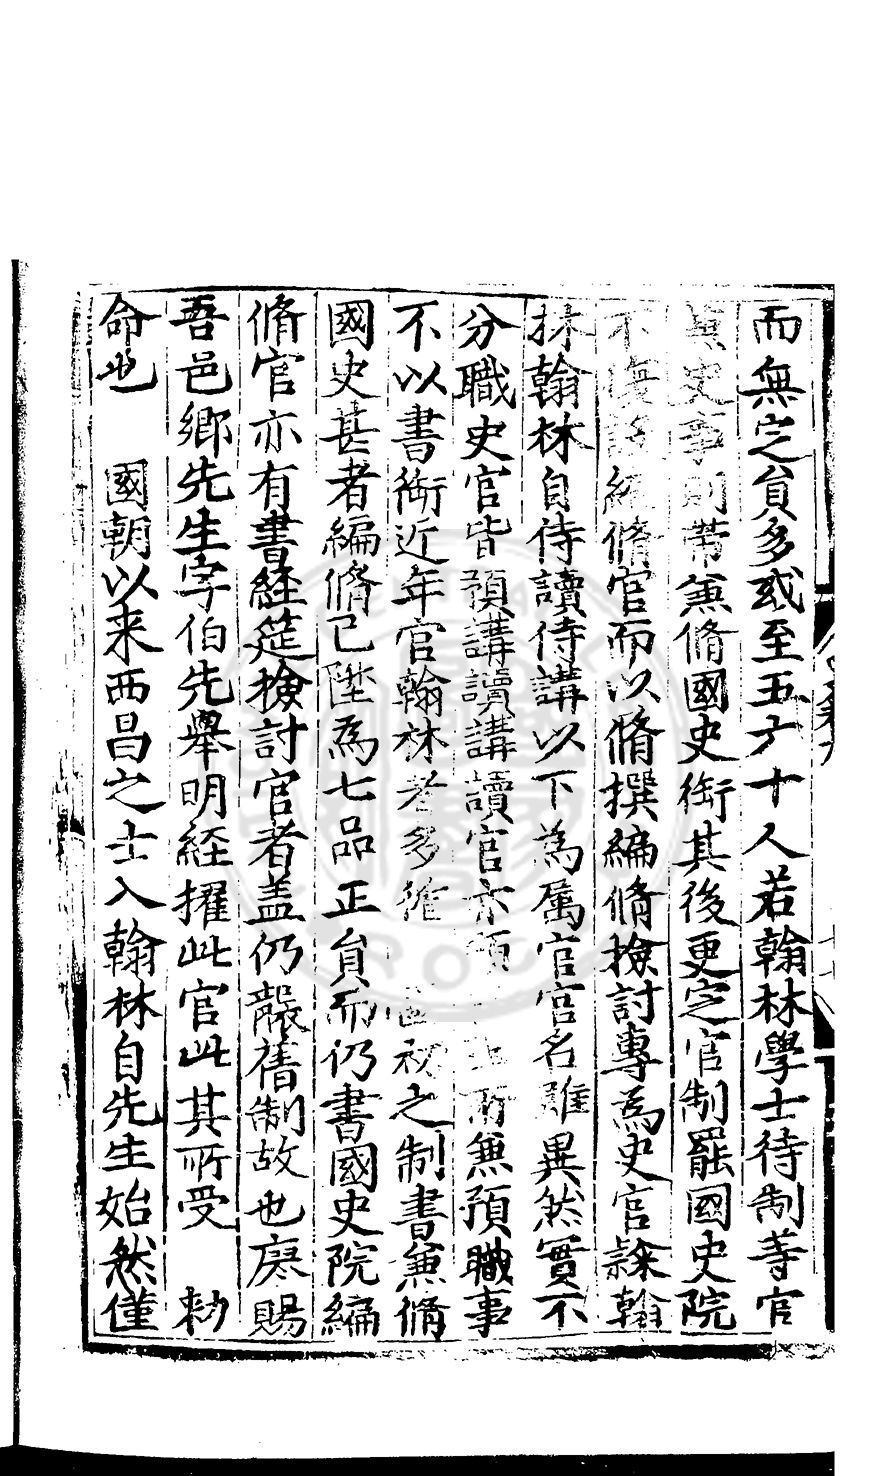 而無定員多或至五六十人若翰林學士待制等官
史事則帶兼脩國史銜其後更定官制罷國史院
不復設編脩官而以脩撰編脩撿討專為史官隸翰
林翰林自侍讀侍講以下為属官官名雖異然實不
分職史官皆預講讀講讀官亦預 而兼預職事
不以書銜近年官翰林者多循 國初之制書兼脩
國史甚者編脩已陞為七品正員而仍書國史院編
脩官亦有書経筵撿討官者盖仍襲舊制故也廖賜
吾邑鄉先生字伯先舉明経擢此官此其所受 勑
命也 國朝以来西昌之士入翰林自先生始然僅